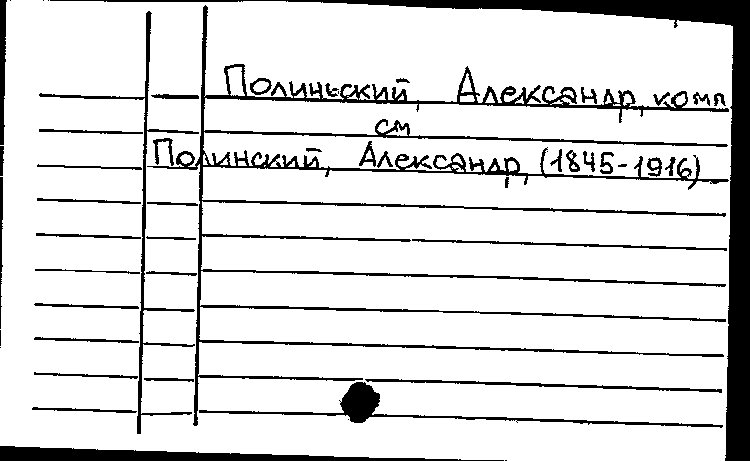 Полиньский, Александр, комп
см
Полинский, Александр, (1845-1916)